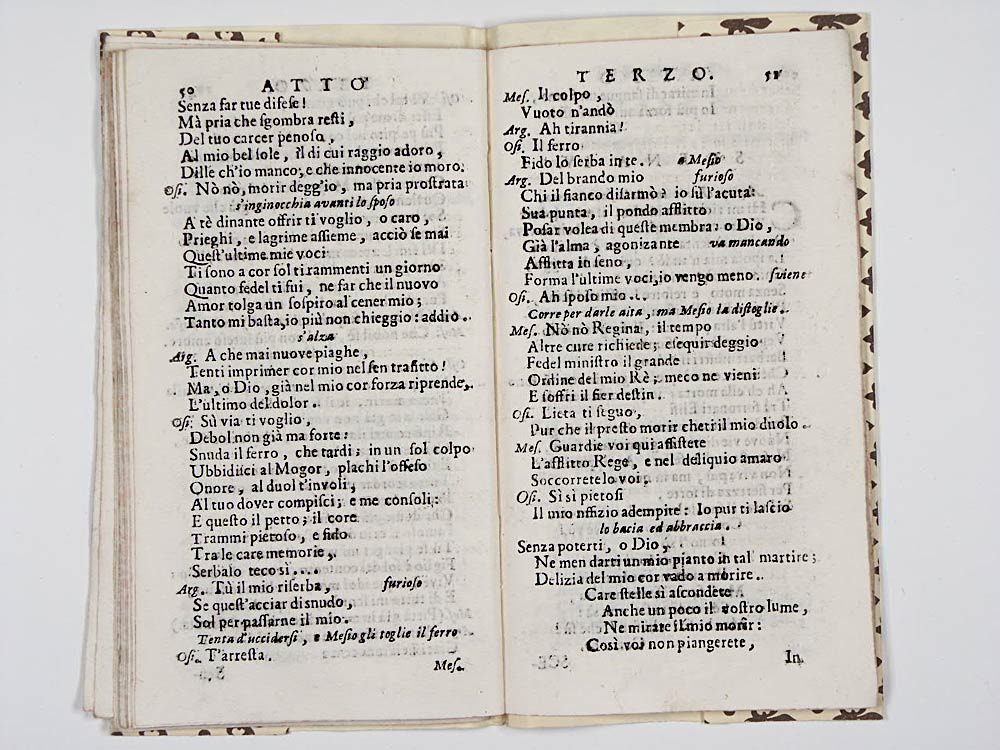 50 ATTO
Senza far tue difese!
Mà pria che sgombra resti,
Del tuo carcer penoso,
Al mio bel sole, il di cui raggio adoro,
Dille ch'io manco; e che innocente io moro.
Osi. Nò nò, morir degg'io, ma pria prostrata
s'inginocchia avanti lo sposo
A tè dinante offrir ti voglio, o caro,
Prieghi, e lagrime assieme, acciò se mai
Quest'ultime mie voci
Ti sono a cor sol ti rammenti un giorno
Quanto fedel ti fui, ne far che il nuovo
Amor tolga un sospiro al cener mio;
Tanto mi basta, io più non chieggio: addio.
s'alza
Arg. A che mai nuove piaghe,
Tenti imprimer cor mio nel sen trafitto!
Ma, o Dio, già nel mio cor forza riprende,
L'ultimo del dolor.
Osi. Sù via ti voglio,
Debol non già ma forte:
Snuda il ferro, che tardi; in un sol colpo
Ubbidisci al Mogor, plachi l'offeso
Onore, al duol t'involi,
Al tuo dover compisci; e me consoli:
E questo il petto; il core
Trammi pietoso, e fido
Tra le care memorie,
Serbalo teco sì....
Arg. Tù il mio riserba, furioso
Se quest'acciar disnudo,
Sol per passarne il mio.
Tenta d'uccidersi, e Mesio gli toglie il ferro
Osi. T'arresta.
Mes.
TERZO. 51
Mes. Il colpo,
Vuoto n'andò
Arg. Ah tirannia!
Osi. Il ferro
Fido lo serba in te. a Mesio
Arg. Del brando mio furioso
Chi il fianco disarmò? io sù l'acuta
Sua punta, il pondo afflitto
Posar volea di queste membra: o Dio,
Già l'alma, agonizante va mancando
Afflitta in seno,
Forma l'ultime voci, io vengo meno. sviene
Osi. Ah sposo mio...
Corre per darle aita, ma Mesio la distoglie.
Mes. Nò nò Regina, il tempo
Altre cure richiede; esequir deggio
Fedel ministro il grande
Ordine del mio Rè; meco ne vieni
E soffri il fier destin.
Osi. Lieta ti seguo,
Pur che il presto morir cheti il mio duolo.
Mes. Guardie voi qui assistete
L'afflitto Rege, e nel deliquio amaro
Soccorretelo voi.
Osi. Sì sì pietosi
Il mio uffizio adempite: Io pur ti lascio
lo bacia ed abbraccia.
Senza poterti, o Dio,
Ne men darti un mio pianto in tal martire;
Delizia del mio cor vado a morire.
Care stelle sì ascondete
Anche un poco il vostro lume,
Ne mirate il mio morir:
Così voi non piangerete,
In